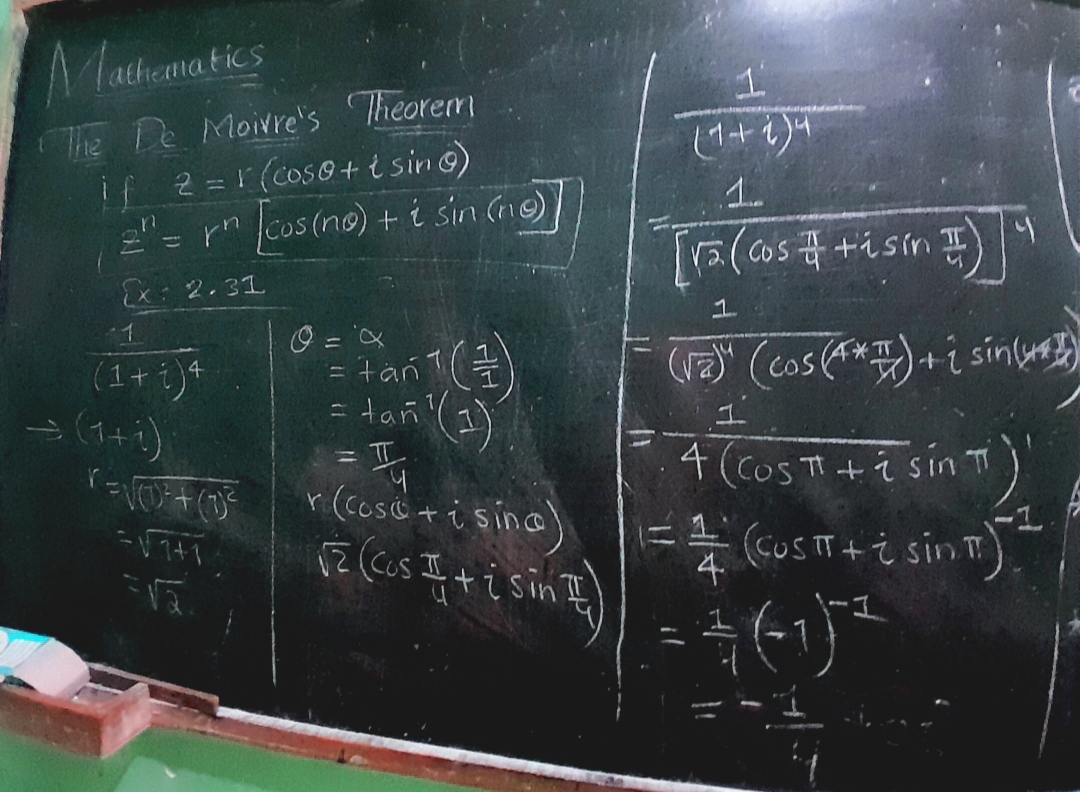 Mathematics
The De Moivre's Theorem
if z = r(cosθ + i sinθ)
zⁿ = rⁿ [cos(nθ) + i sin(nθ)]
Ex: 2.31
1/(1+i)⁴
→ (1+i)
r = √((1)² + (1)²)
= √(1+1)
= √2
θ = α
= tan⁻¹(1/1)
= tan⁻¹(1)
= π/4
r(cosθ + i sinθ)
√2(cos π/4 + i sin π/4)
1/(1+i)⁴
= 1/[√2(cos π/4 + i sin π/4)]⁴
= 1/((√2)⁴ (cos(4*π/4) + i sin(4*π/4))
= 1/(4(cosπ + i sinπ)¹)
= 1/4 (cosπ + i sinπ)⁻¹
= 1/4 (-1)⁻¹
= - 1/4